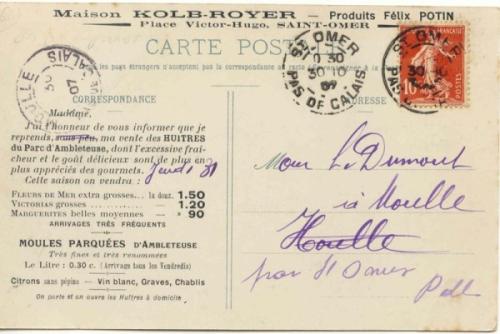 Maison KOLB-ROYER — Produits Félix POTIN
Place Victor-Hugo, SAINT-OMER
CARTE POSTALE
les pays étrangers n'acceptent pas la correspondance au
CORRESPONDANCE
ADRESSE
ST OMER
30
PAS DE CALAIS
ST OMER
30
PAS DE
10
POSTES
CALAIS
Madame,
J'ai l'honneur de vous informer que je
reprends, sous peu, ma vente des HUITRES
du Parc d'Ambleteuse, dont l'excessive fraî-
cheur et le goût délicieux sont de plus en
plus appréciés des gourmets. Jeudi 31
Cette saison on vendra :
FLEURS DE MER extra grosses... la douz. 1.50
VICTORIAS grosses — 1.20
MARGUERITES belles moyennes — » 90
ARRIVAGES TRÈS FRÉQUENTS
MOULES PARQUÉES D'AMBLETEUSE
Très fines et très renommées
Le Litre : 0.30 c. (Arrivage tous les Vendredis)
Citrons sans pépins - Vin blanc, Graves, Chablis
On porte et on ouvre les Huîtres à domicile
Dumont
à Moulle
Houlle
par St Omer
P d C